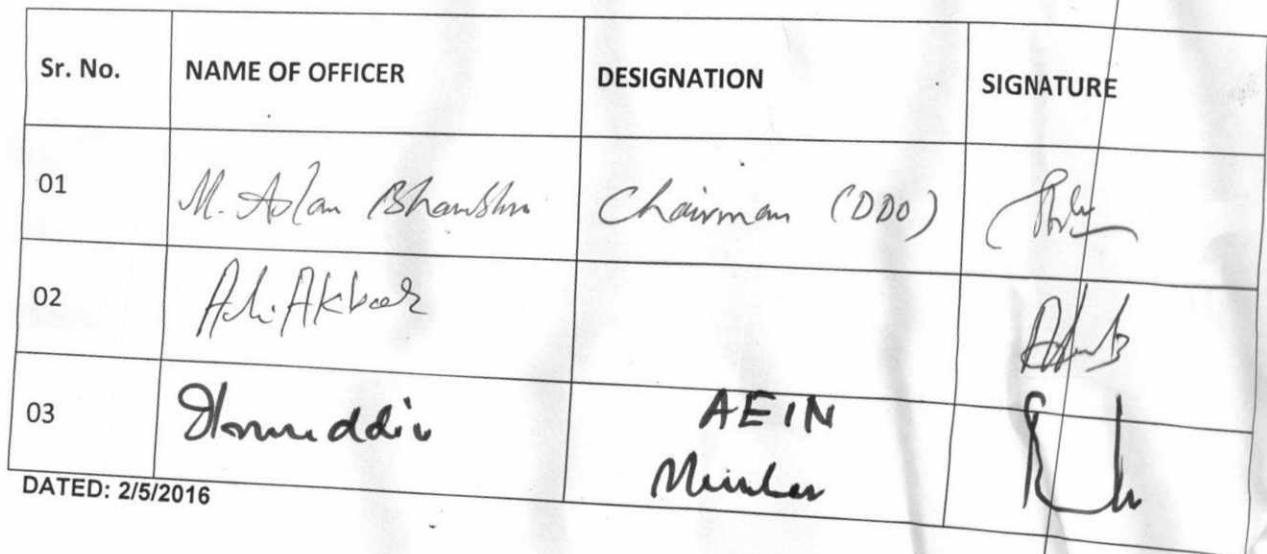 Sr. No. NAME OF OFFICER DESIGNATION SIGNATURE
01 M. Aslam Chairman (DDO)
02 Akbar
03 AEIN
Member
DATED: 2/5/2016